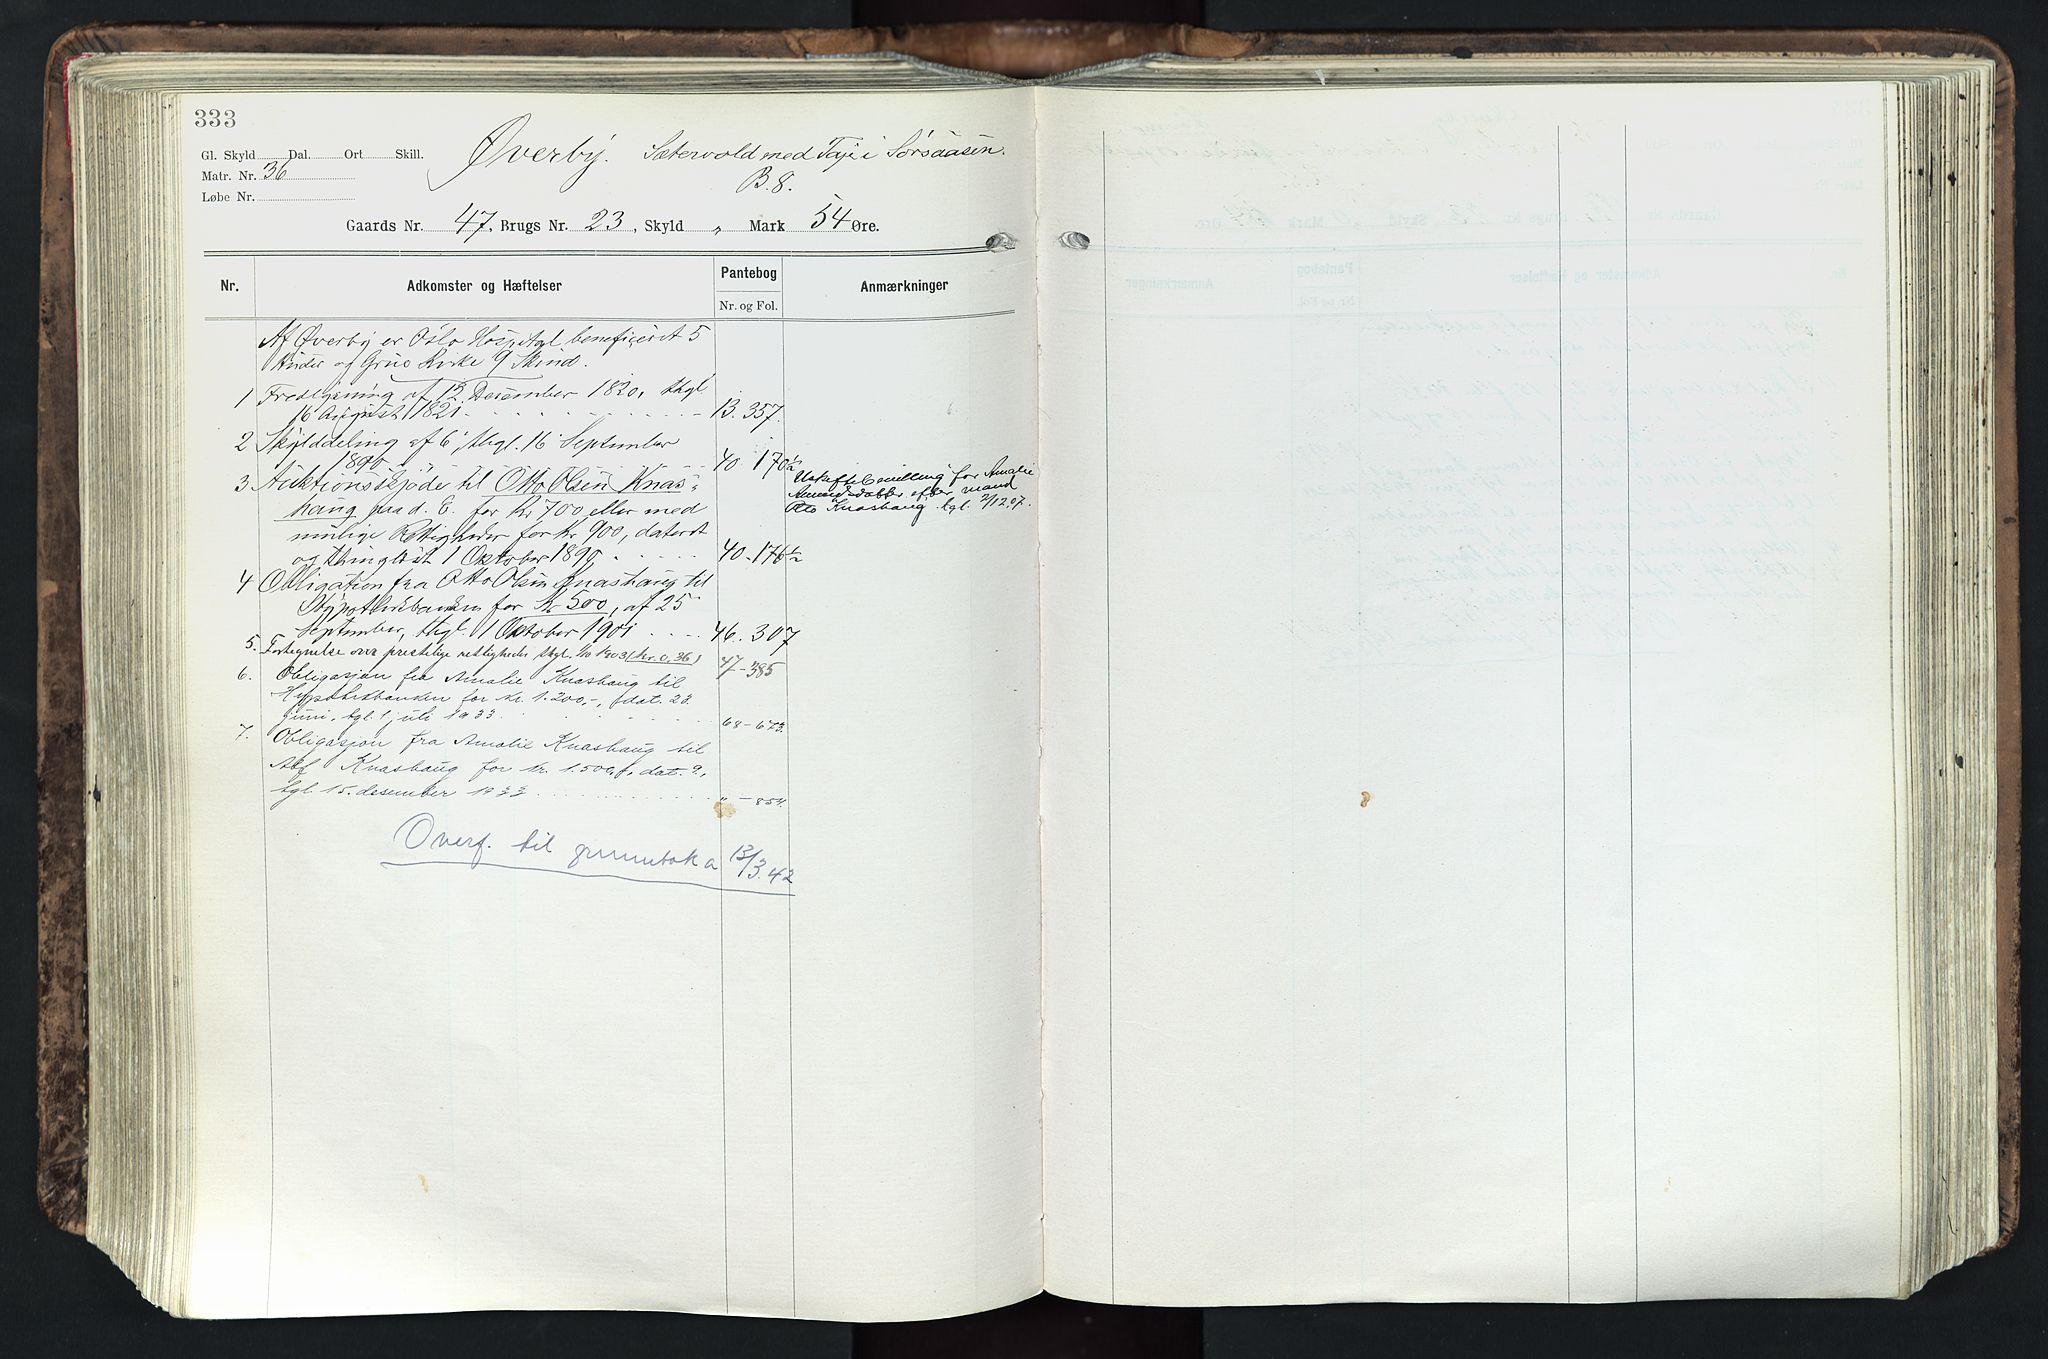 333
Gl. Skyld Dal. Ort Skill.
Øverby. Sætervold med Tøje i Sørsaasen.
Matr. Nr. 36
B. 8.
Løbe Nr.
Gaards Nr. 47, Brugs Nr. 23, Skyld „ Mark 54 Øre.
Nr. Adkomster og Hæftelser Pantebog Anmærkninger
Nr. og Fol.
Af Øverby er Oslo Hospital beneficeret 5
Huder og Grue Kirke 9 Skind.
1 Fredlysning af 12 December 1820, thgl.
16 August 1821. B. 357.
2 Skylddeling af 6, thgl. 16 September
1890 40 . 170½
3 Auktionsskjøde til Otto Olsen Knas-
haug paa d. E. for Kr 700 eller med
mulige Rettigheder for Kr 900, dateret
og thinglæst 1 Oktober 1890 40 . 176½
Uskiftebevilling for Amalie
efter mand
Otto Knashaug tgl. 2/12.07.
4 Obligation fra Otto Olsen Knashaug til
Hypothekbanken for Kr 500, af 25
September, thgl. 1 Oktober 1901 46 . 307
5. Fortegnelse over prestelige rettigheder thgl. 1/10 1903 (kr. 0,36) 47 – 385
6. Obligasjon fra Amalie Knashaug til
Hypotekbanken for kr. 1.200,-, dat. 23
juni, tgl. 1 juli 1933 68 – 673.
7. Obligasjon fra Amalie Knashaug til
Knashaug for kr. 1.500,-, dat. 9.,
tgl. 15. desember 1933 „ – 854.
Overf. til grunnboka 13/3.42